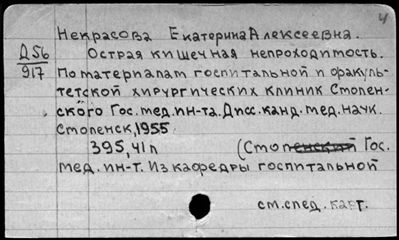 4
Некрасова Екатерина Алексеевна.
Д56
917
Острая кишечная непроходимость.
По материалам госпитальной и факуль-
тетской хирургических клиник Смолен-
ского Гос. мед. ин-та. Дисс. канд. мед. наук.
Смоленск, 1955
395, 41 л (Смоленский Гос.
мед. ин-т. Из кафедры госпитальной
см. след. карт.